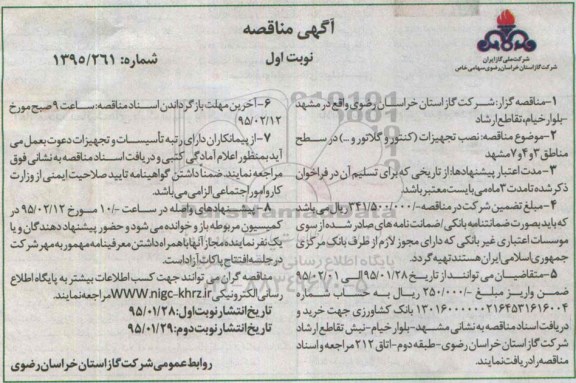 آگهی مناقصه
نوبت اول
شماره: ۱۳۹۵/۲۶۱
شرکت ملی گاز ایران
شرکت گاز استان خراسان رضوی سهامی خاص
۱-مناقصه گزار: شرکت گاز استان خراسان رضوی واقع در مشهد
-بلوار خیام، تقاطع ارشاد
۲-موضوع مناقصه: نصب تجهیزات (کنتور و گلاتور و...) در سطح
مناطق ۳و۴و۷مشهد
۳-مدت اعتبار پیشنهادها: از تاریخی که برای تسلیم آن در فراخوان
ذکر شده تا مدت ۳ماه می بایست معتبر باشد.
۴-مبلغ تضمین شرکت در مناقصه ۳۴۱/۵۰۰/۰۰۰/-ریال می باشد
که باید بصورت ضمانتنامه بانکی /ضمانت نامه های صادر شده از سوی
موسسات اعتباری غیر بانکی که دارای مجوز لازم از طرف بانک مرکزی
جمهوری اسلامی ایران هستند تهیه گردد.
۵-متقاضیان می توانند از تاریخ ۹۵/۰۱/۲۸الی ۹۵/۰۲/۰۱
ضمن واریز مبلغ ۲۵۰/۰۰۰/- ریال به حساب شماره
۱۳۰۱۶۰۰۰۰۰۰۲۱۶۴۵۳۱۶۱۶۰۰۴ بانک کشاورزی جهت خرید و
دریافت اسناد مناقصه به نشانی مشهد-بلوار خیام-نبش تقاطع ارشاد
شرکت گاز استان خراسان رضوی-طبقه دوم-اتاق ۲۱۲مراجعه و اسناد
مناقصه را دریافت نمایند.
۶-آخرین مهلت باز گرداندن اسناد مناقصه: ساعت ۹صبح مورخ
۹۵/۰۲/۱۲
۷-از پیمانکاران دارای رتبه تأسیسات و تجهیزات دعوت بعمل می
آید بمنظور اعلام آمادگی کتبی و دریافت اسناد مناقصه به نشانی فوق
مراجعه نمایند. ضمناً داشتن گواهینامه تایید صلاحیت ایمنی از وزارت
کار و امور اجتماعی الزامی می باشد.
۸-پیشنهادهای واصله در ساعت ۱۰/- مورخ ۹۵/۰۲/۱۲ در
کمیسیون مربوطه باز و خوانده می شود و حضور پیشنهاد دهندگان و یا
یک نفر نماینده مجاز آنها با همراه داشتن معرفینامه ممهور به مهر شرکت
در جلسه افتتاح پاکات آزاد است.
مناقصه گران می توانند جهت کسب اطلاعات بیشتر به پایگاه اطلاع
رسانی الکترونیکی WWW.nigc-khrz.ir مراجعه نمایند.
تاریخ انتشار نوبت اول: ۹۵/۰۱/۲۸
تاریخ انتشار نوبت دوم: ۹۵/۰۱/۲۹
روابط عمومی شرکت گاز استان خراسان رضوی